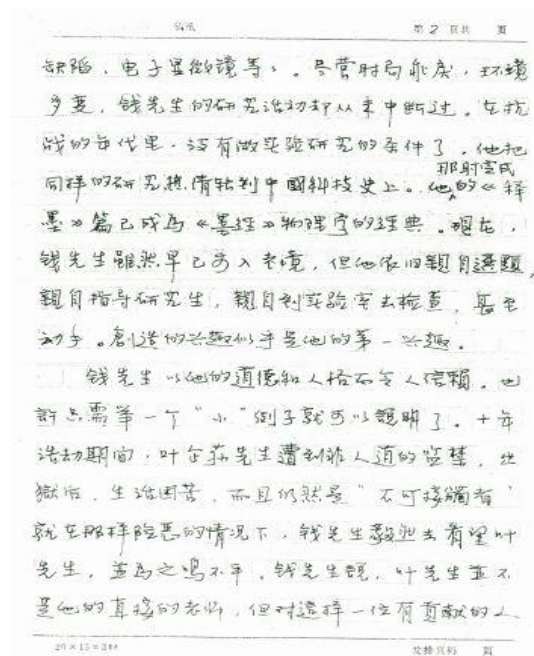 稿纸 第2页共 页
缺陷，电子显微镜等。尽管时局乖戾，环境
多变，钱先生的研究活动却从未中断过。在抗
战的年代里，没有做实验研究的条件了，他把
那时写成
同样的研究热情转到中國科技史上。他的《释
墨》篇已成為《墨经》物理学的经典。现在，
钱先生雖然早已步入老境，但他依旧親自選題，
親自指导研究生，親自到实验室去檢查，甚至
动手。創造的兴趣似乎是他的第一兴趣。
钱先生以他的道德和人格而令人信賴。也
許只需举一个“小”例子就可以說明了。十年
浩劫期间，叶企荪先生遭到非人道的监禁，出
獄后，生活困苦，而且仍然是“不可接觸者”
就在那样险恶的情况下，钱先生敢進去看望叶
先生，並為之鳴不平。钱先生說，叶先生並不
是他的直接的老师，但对這样一位有貢献的人
20×15=300 发排页码 页